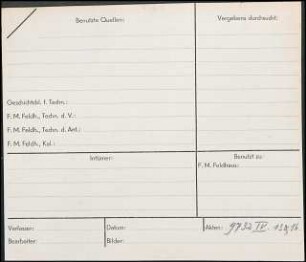 Benutzte Quellen:
Vergebens durchsucht:
Geschichtsbl. f. Techn.:
F. M. Feldh., Techn. d. V.:
F. M. Feldh., Techn. d. Ant.:
F. M. Feldh., Kal.:
Irrtümer:
Benutzt zu:
F. M. Feldhaus:
Verfasser:
Datum:
Akten: 9732 IV
Bearbeiter:
Bilder: